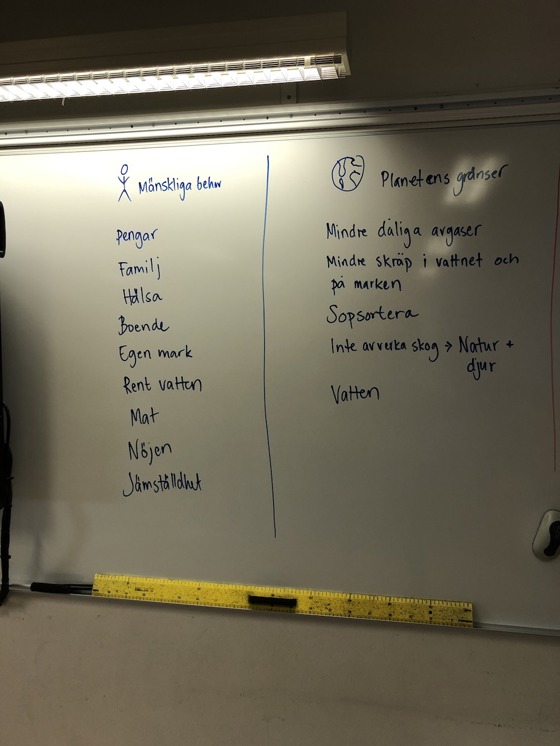 Mänskliga behov
pengar
Familj
Hälsa
Boende
Egen mark
Rent vatten
Mat
Nöjen
Jämställdhet
Planetens gränser
Mindre dåliga avgaser
Mindre skräp i vattnet och
på marken
Sopsortera
Inte avverka skog → Natur +
djur
Vatten